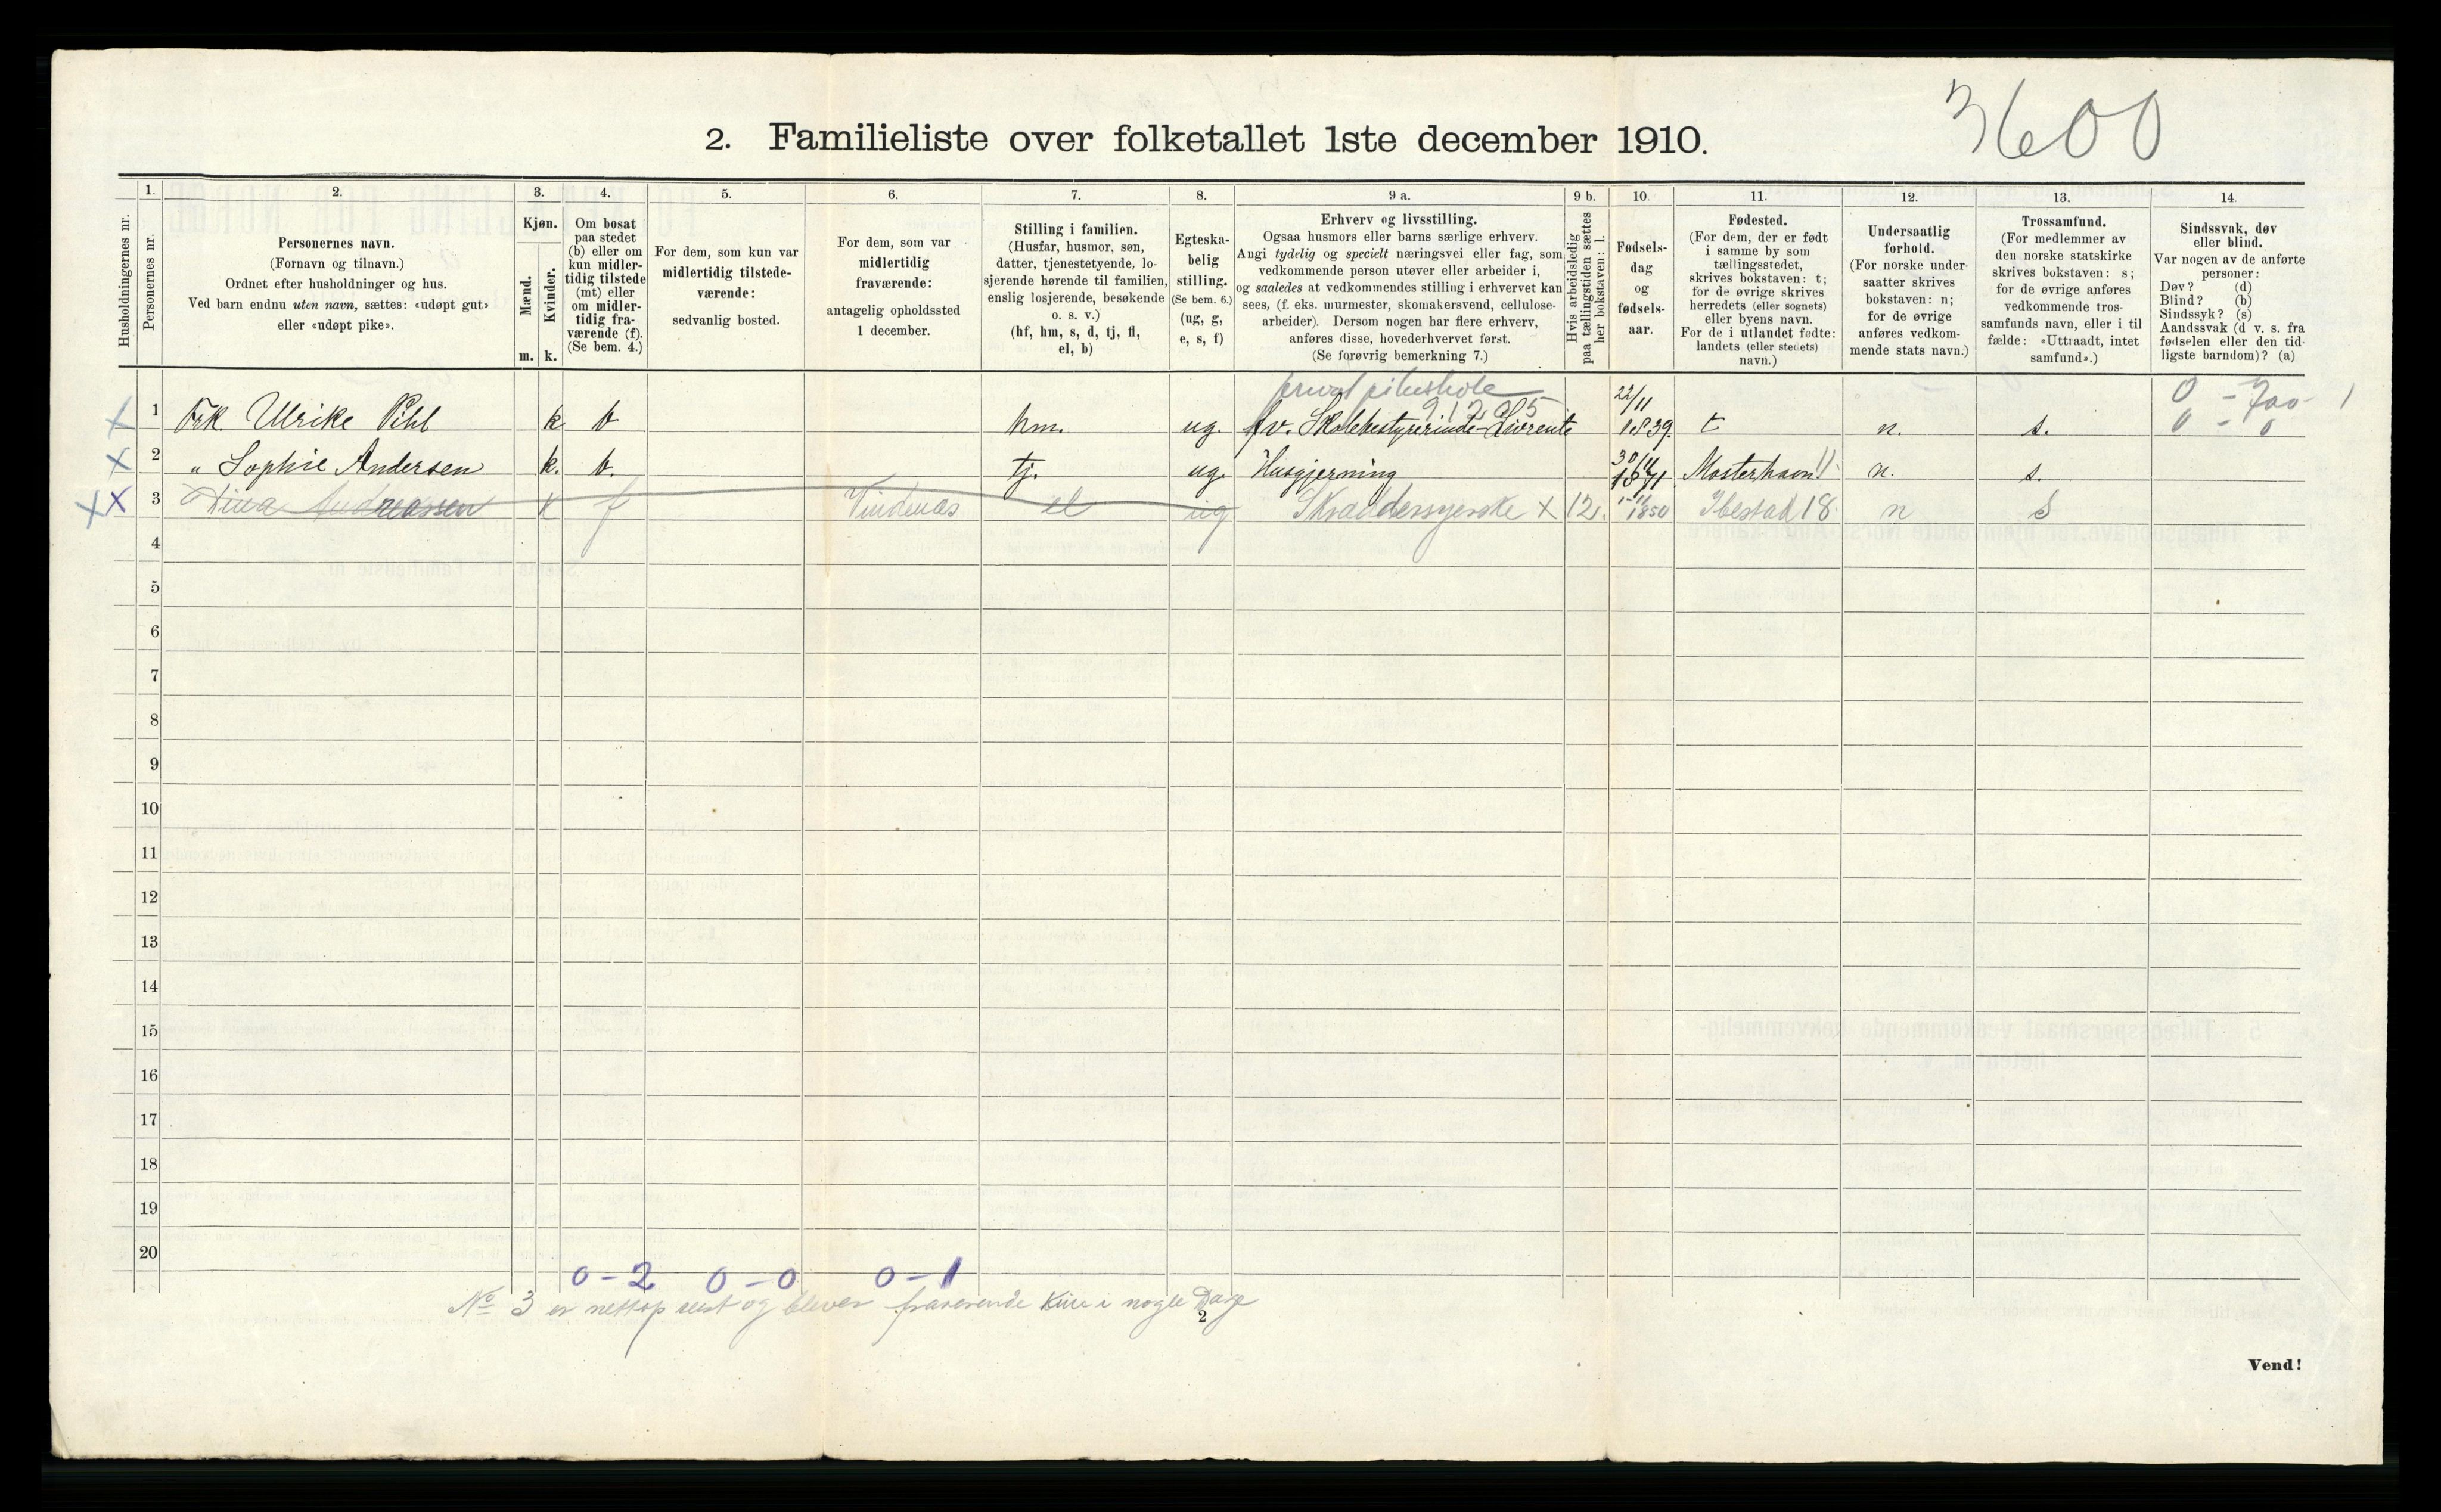 3600
2. Familieliste over folketallet 1ste december 1910.
Husholdningernes nr.
1.
Personernes nr.
2.
Personernes navn.
(Fornavn og tilnavn.)
Ordnet efter husholdninger og hus.
Ved barn endnu uten navn, sættes: «udøpt gut»
eller «udøpt pike».
3.
Kjøn.
Mænd.
Kvinder.
m. k.
4.
Om bosat
paa stedet
(b) eller om
kun midler-
tidig tilstede
(mt) eller
om midler-
tidig fra-
værende (f).
(Se bem. 4.)
5.
For dem, som kun var
midlertidig tilstede-
værende:
sedvanlig bosted.
6.
For dem, som var
midlertidig
fraværende:
antagelig opholdssted
1 december.
7.
Stilling i familien.
(Husfar, husmor, søn,
datter, tjenestetyende, lo-
sjerende hørende til familien,
enslig losjerende, besøkende
o. s. v.)
(hf, hm, s, d, tj, fl,
el, b)
8.
Egteska-
belig
stilling.
(Se bem. 6.)
(ug, g,
e, s, f)
9 a.
Erhverv og livsstilling.
Ogsaa husmors eller barns særlige erhverv.
Angi tydelig og specielt næringsvei eller fag, som
vedkommende person utøver eller arbeider i,
og saaledes at vedkommendes stilling i erhvervet kan
sees, (f. eks. murmester, skomakersvend, cellulose-
arbeider). Dersom nogen har flere erhverv,
anføres disse, hovederhvervet først.
(Se forøvrig bemerkning 7.)
9 b.
Hvis arbeidsledig
paa tællingstiden sættes
her bokstaven: l.
10.
Fødsels-
dag
og
fødsels-
aar.
11.
Fødested.
(For dem, der er født
i samme by som
tællingsstedet,
skrives bokstaven: t;
for de øvrige skrives
herredets (eller sognets)
eller byens navn.
For de i utlandet fødte:
landets (eller stedets)
navn.)
12.
Undersaatlig
forhold.
(For norske under-
saatter skrives
bokstaven: n;
for de øvrige
anføres vedkom-
mende stats navn.)
13.
Trossamfund.
(For medlemmer av
den norske statskirke
skrives bokstaven: s;
for de øvrige anføres
vedkommende tros-
samfunds navn, eller i til-
fælde: «Uttraadt, intet
samfund».)
14.
Sindssvak, døv
eller blind.
Var nogen av de anførte
personer:
Døv? (d)
Blind? (b)
Sindssyk? (s)
Aandssvak (d v. s. fra
fødselen eller den tid-
ligste barndom)? (a)
privat pikeskole 0 - 700 - 1
X 1 Frk. Ulrike Pihl k b hm. ug. fv. Skolebestyrerinde-Livrente 22/11 1839. t n. s. 0 - 0
X 2 „ Sophie Andersen k. b. tj. ug. Husgjerning 30/11 1871 Mosterhavn 11. n. s.
XX 3 Tina Andreassen k f Vindenæs el ug Skræddersyerske X 12. 1850 Ibestad 18 n s
4
5
6
7
8
9
10
11
12
13
14
15
16
17
18
19
20
0 - 2 0 - 0 0 - 1
No 3 er nettop reist og blever fraverende kun i nogle Dage
2
Vend!